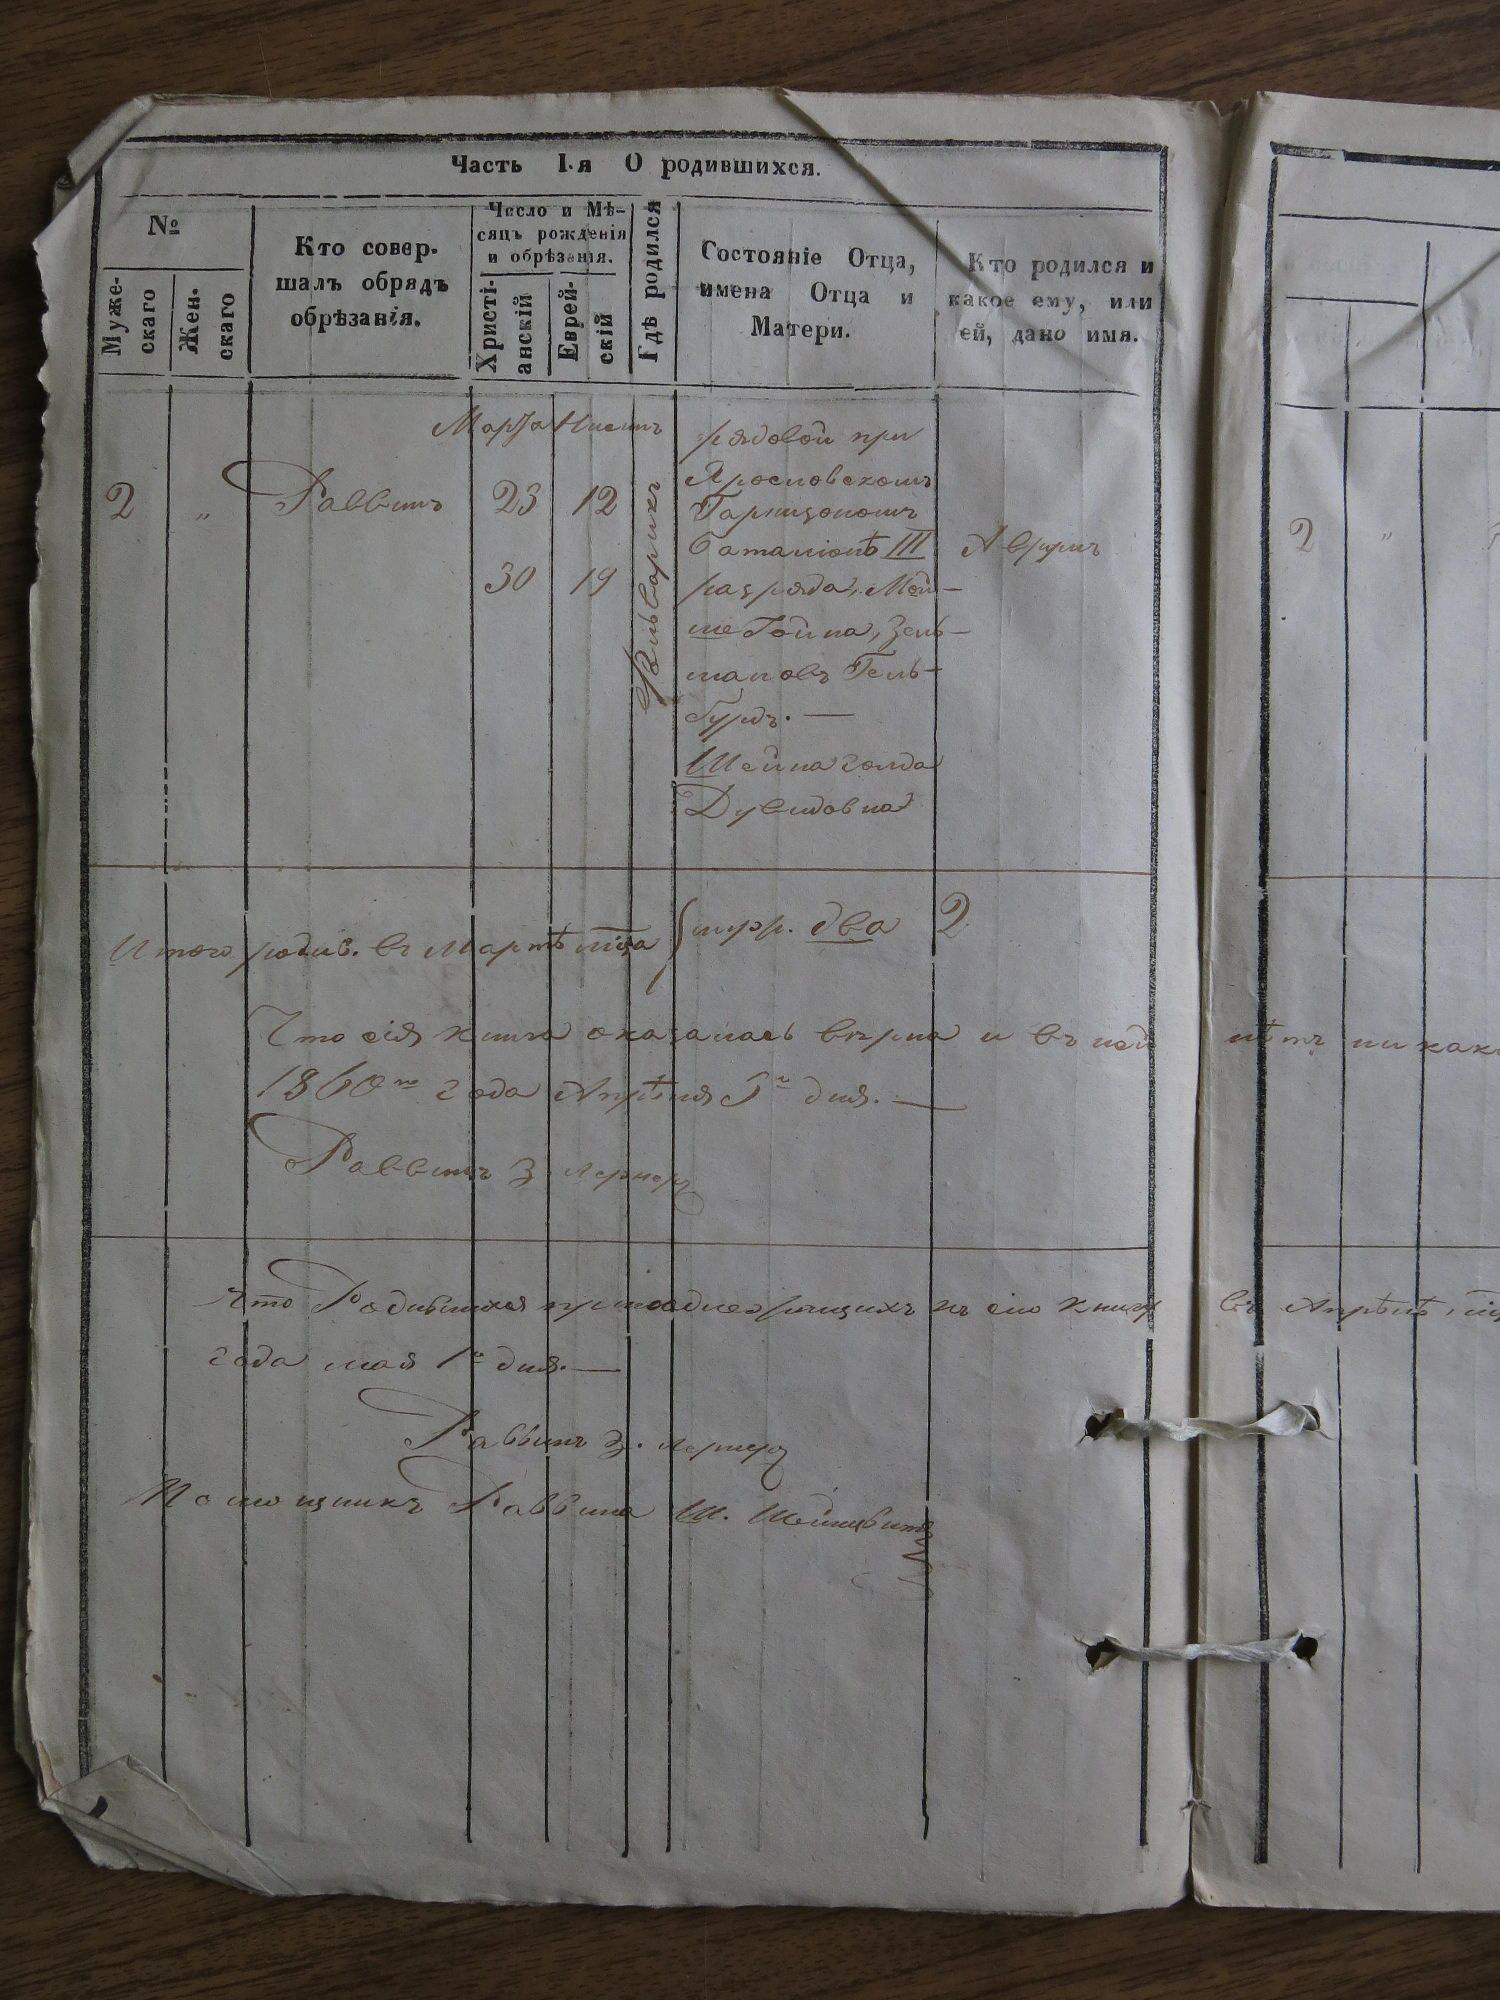 Часть I.я О родившихся.
№
Муже-
скаго
Жен-
скаго
Кто совер-
шалъ обрядъ
обрѣзанія.
Число и Мѣ-
сяцъ рожденія
и обрѣзанія.
Христі-
анскій
Еврей-
скій
Гдѣ родился
Состояніе Отца,
имена Отца и
Матери.
Кто родился и
какое ему, или
ей, дано имя.
2
"
Раввинъ
Марта
23
30
Нисинъ
12
19
Фольварикъ
рядовой при
Ярословскомъ
Гарнизономъ
баталіонѣ III
разряда, Мой-
ше Гойна, Зель-
мановъ Гель-
бурдъ. —
Шейна голда
Дувидовна
Аврумъ
Итого родив. въ Мартѣ мца
два 2
Что сія книга оказалась вѣрна и въ ней нѣтъ ни како
1860го года Апрѣля дня. —
Раввинъ З. Лернеръ
Что Родившихся въ сію книгу въ Апрѣлѣ
года мая 1го дня. —
Раввинъ З. Лернеръ
Помощникъ Раввина Ш.
2
"